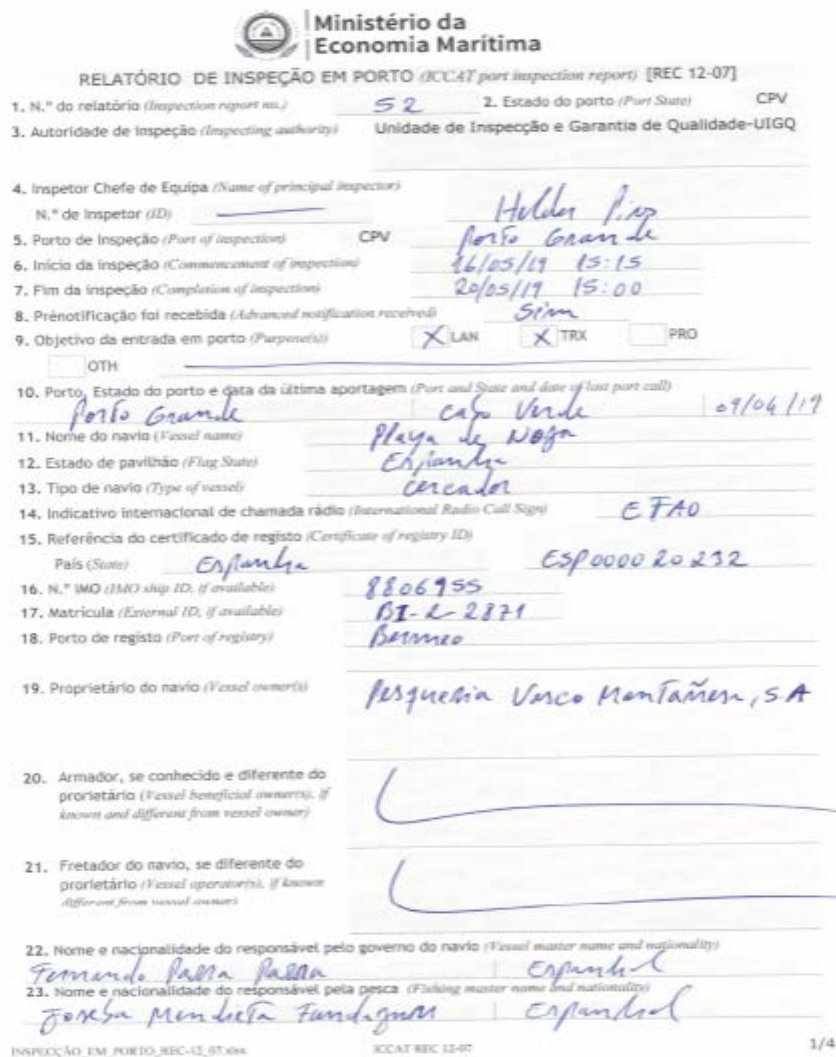 Ministério da
Economia Marítima
RELATÓRIO DE INSPEÇÃO EM PORTO (ICCAT port inspection report) [REC 12-07]
1. N.º do relatório (Inspection report no.) 52 2. Estado do porto (Port State) CPV
3. Autoridade de inspeção (Inspecting authority) Unidade de Inspecção e Garantia de Qualidade-UIGQ
4. Inspetor Chefe de Equipa (Name of principal inspector)
N.º de Inspetor (ID) Helder
5. Porto de Inspeção (Port of inspection) CPV Porto Grande
6. Início da inspeção (Commencement of inspection) 16/05/19 15:15
7. Fim da inspeção (Completion of inspection) 20/05/19 15:00
8. Prénotificação foi recebida (Advanced notification received) Sim
9. Objetivo da entrada em porto (Purpose(s)) X LAN X TRX PRO
OTH
10. Porto, Estado do porto e data da última aportagem (Port and State and date of last port call)
Porto Grande Cabo Verde 09/04/19
11. Nome do navio (Vessel name) Playa de Noja
12. Estado de pavilhão (Flag State) Espanha
13. Tipo de navio (Type of vessel) cercador
14. Indicativo internacional de chamada rádio (International Radio Call Sign) EFAO
15. Referência do certificado de registo (Certificate of registry ID)
País (State) Espanha ESP000020232
16. N.º IMO (IMO ship ID, if available) 8806955
17. Matrícula (External ID, if available) BI-2-2871
18. Porto de registo (Port of registry) Bermeo
19. Proprietário do navio (Vessel owner(s)) Pesqueria Vasco Montañesa, SA
20. Armador, se conhecido e diferente do
prorietário (Vessel beneficial owner(s), if
known and different from vessel owner)
21. Fretador do navio, se diferente do
prorietário (Vessel operator(s), if known
different from vessel owner)
22. Nome e nacionalidade do responsável pelo governo do navio (Vessel master name and nationality)
Fernando Parra Parra Espanhol
23. Nome e nacionalidade do responsável pela pesca (Fishing master name and nationality)
Joseba Mendieta Espanhol
INSPECÇÃO_EM_PORTO_REC-12_07.xlsx ICCAT REC 12-07 1/4